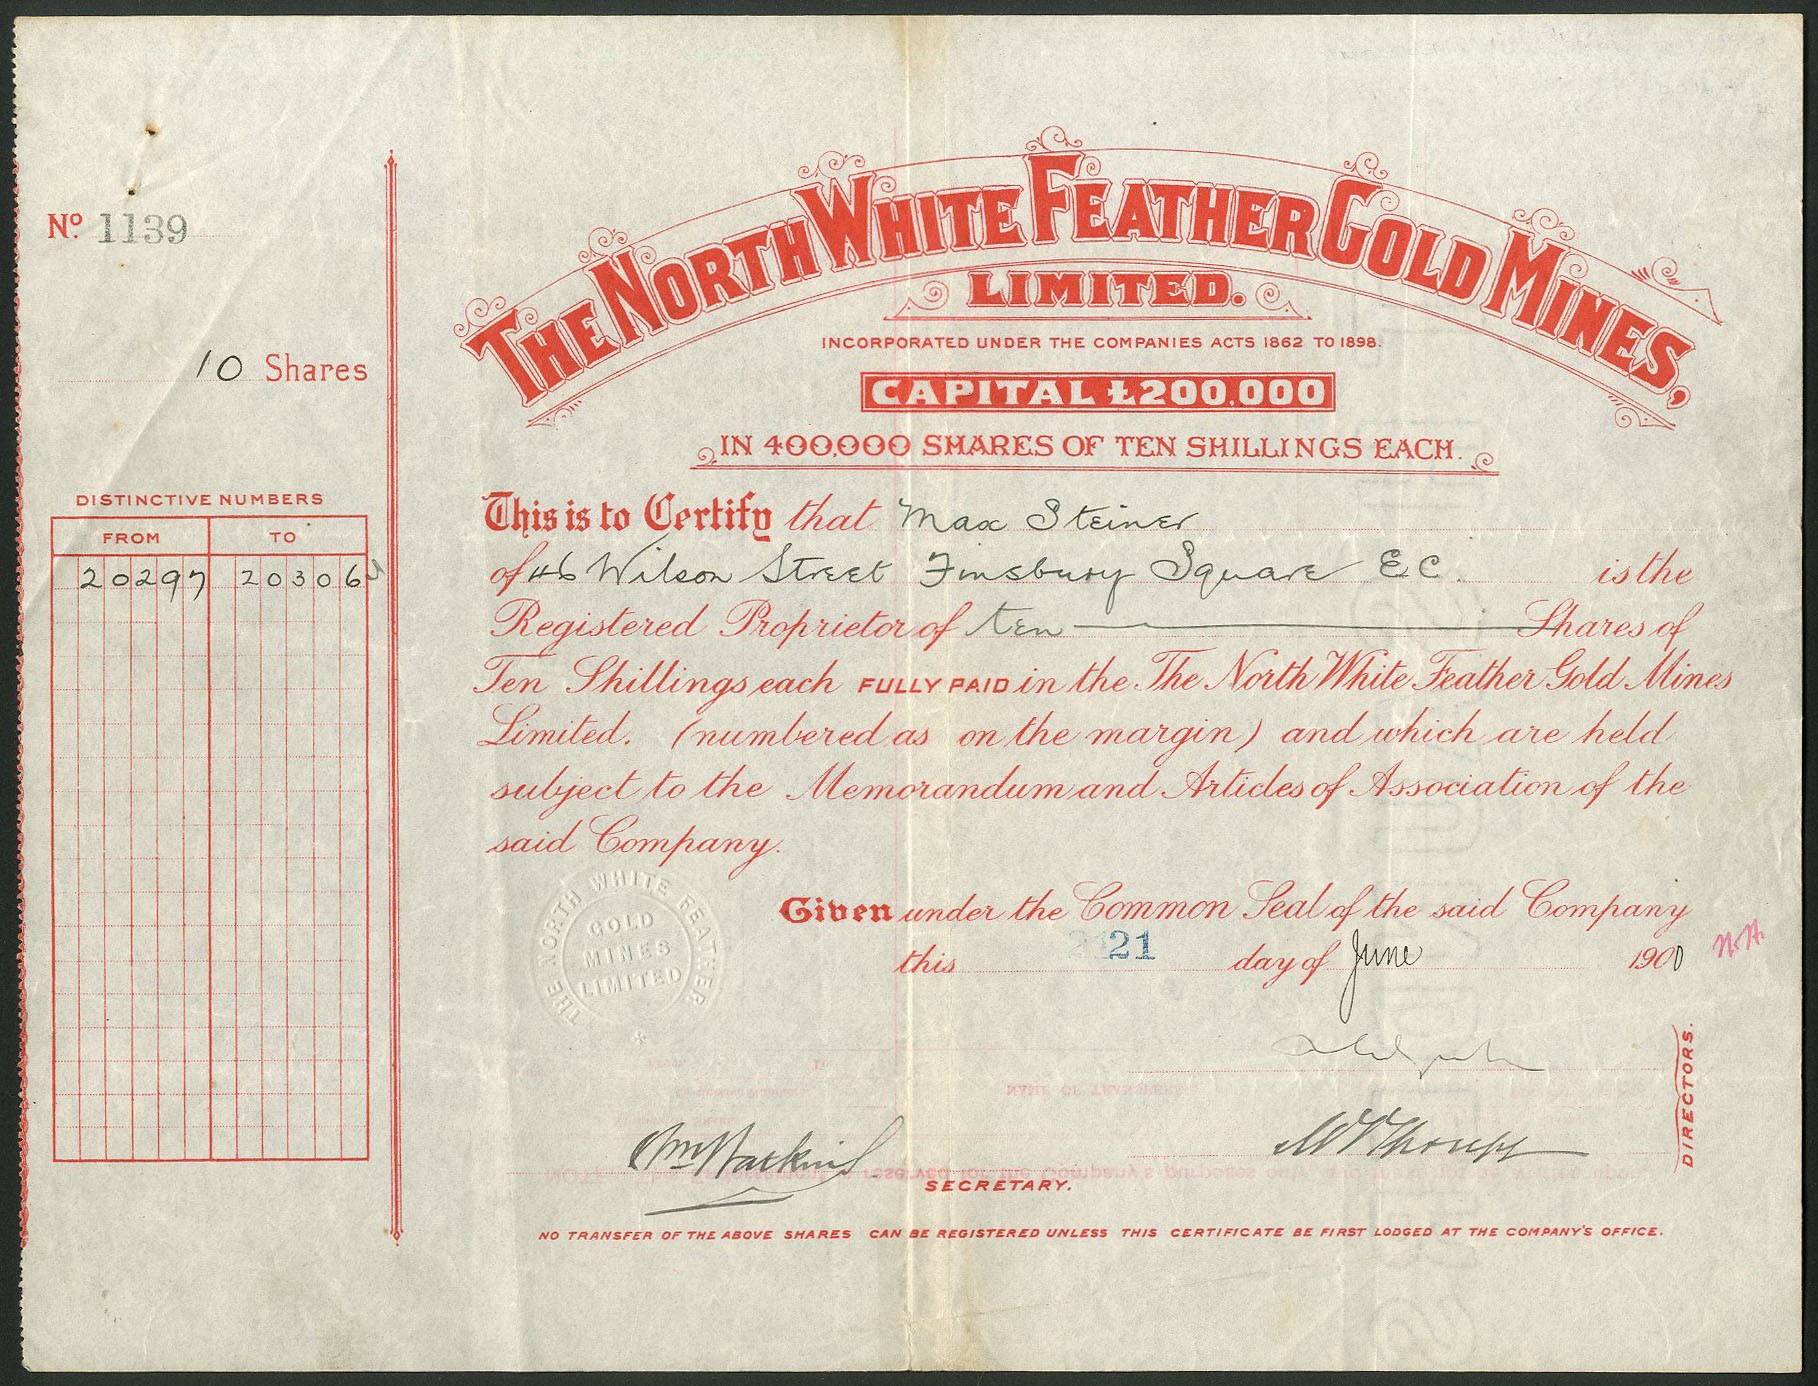 No. 1139
10 Shares
DISTINCTIVE NUMBERS
FROM TO
20297 20306
THE NORTH WHITE FEATHER GOLD MINES,
LIMITED.
INCORPORATED UNDER THE COMPANIES ACTS 1862 TO 1898.
CAPITAL £200,000
IN 400,000 SHARES OF TEN SHILLINGS EACH.
This is to Certify that Max Steiner
of 46 Wilson Street Finsbury Square E C. is the
Registered Proprietor of ten Shares of
Ten Shillings each FULLY PAID in the The North White Feather Gold Mines
Limited. (numbered as on the margin) and which are held
subject to the Memorandum and Articles of Association of the
said Company.
THE NORTH WHITE FEATHER
GOLD
MINES
LIMITED
Given under the Common Seal of the said Company
this 21 day of June 1900
DIRECTORS.
NAME OF TRANSFEREE
SECRETARY.
NO TRANSFER OF THE ABOVE SHARES CAN BE REGISTERED UNLESS THIS CERTIFICATE BE FIRST LODGED AT THE COMPANY'S OFFICE.